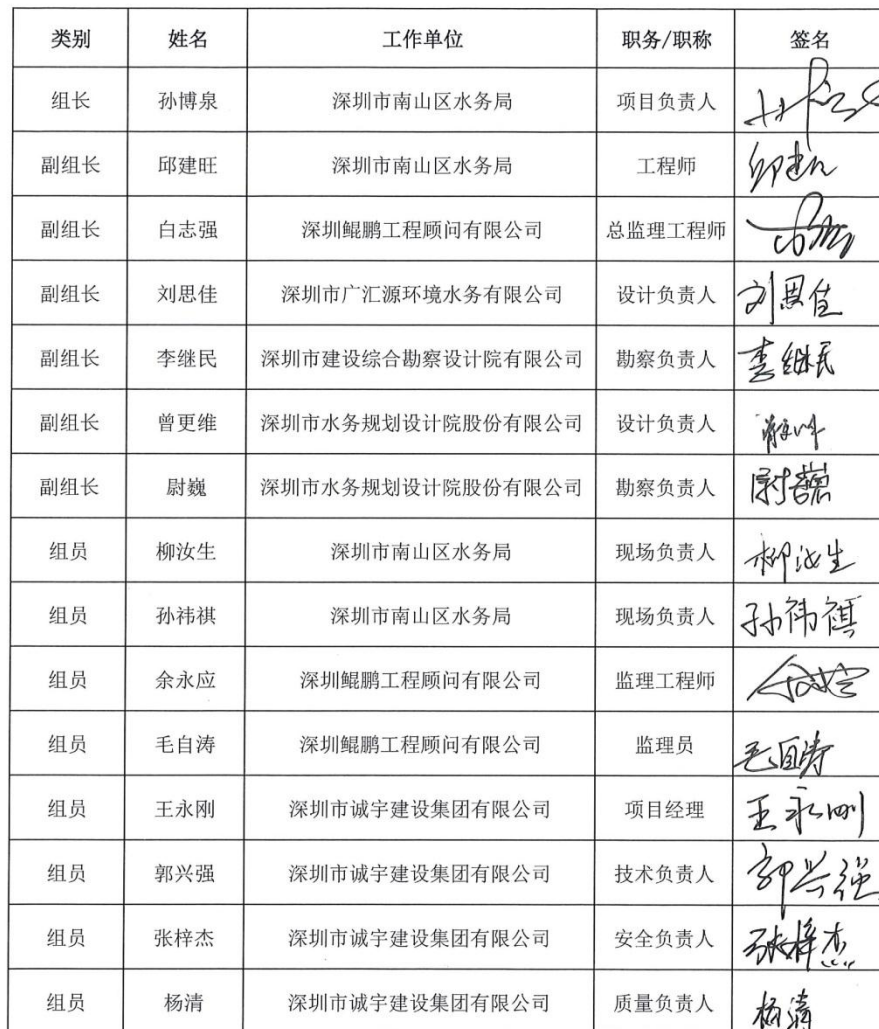 类别 姓名 工作单位 职务/职称 签名
组长 孙博泉 深圳市南山区水务局 项目负责人
副组长 邱建旺 深圳市南山区水务局 工程师
副组长 白志强 深圳鲲鹏工程顾问有限公司 总监理工程师
副组长 刘思佳 深圳市广汇源环境水务有限公司 设计负责人 刘思佳
副组长 李继民 深圳市建设综合勘察设计院有限公司 勘察负责人 李继民
副组长 曾更维 深圳市水务规划设计院股份有限公司 设计负责人
副组长 尉巍 深圳市水务规划设计院股份有限公司 勘察负责人
组员 柳汝生 深圳市南山区水务局 现场负责人 柳汝生
组员 孙祎祺 深圳市南山区水务局 现场负责人 孙祎祺
组员 余永应 深圳鲲鹏工程顾问有限公司 监理工程师
组员 毛自涛 深圳鲲鹏工程顾问有限公司 监理员 毛自涛
组员 王永刚 深圳市诚宇建设集团有限公司 项目经理 王永刚
组员 郭兴强 深圳市诚宇建设集团有限公司 技术负责人 郭兴强
组员 张梓杰 深圳市诚宇建设集团有限公司 安全负责人 张梓杰
组员 杨清 深圳市诚宇建设集团有限公司 质量负责人 杨清